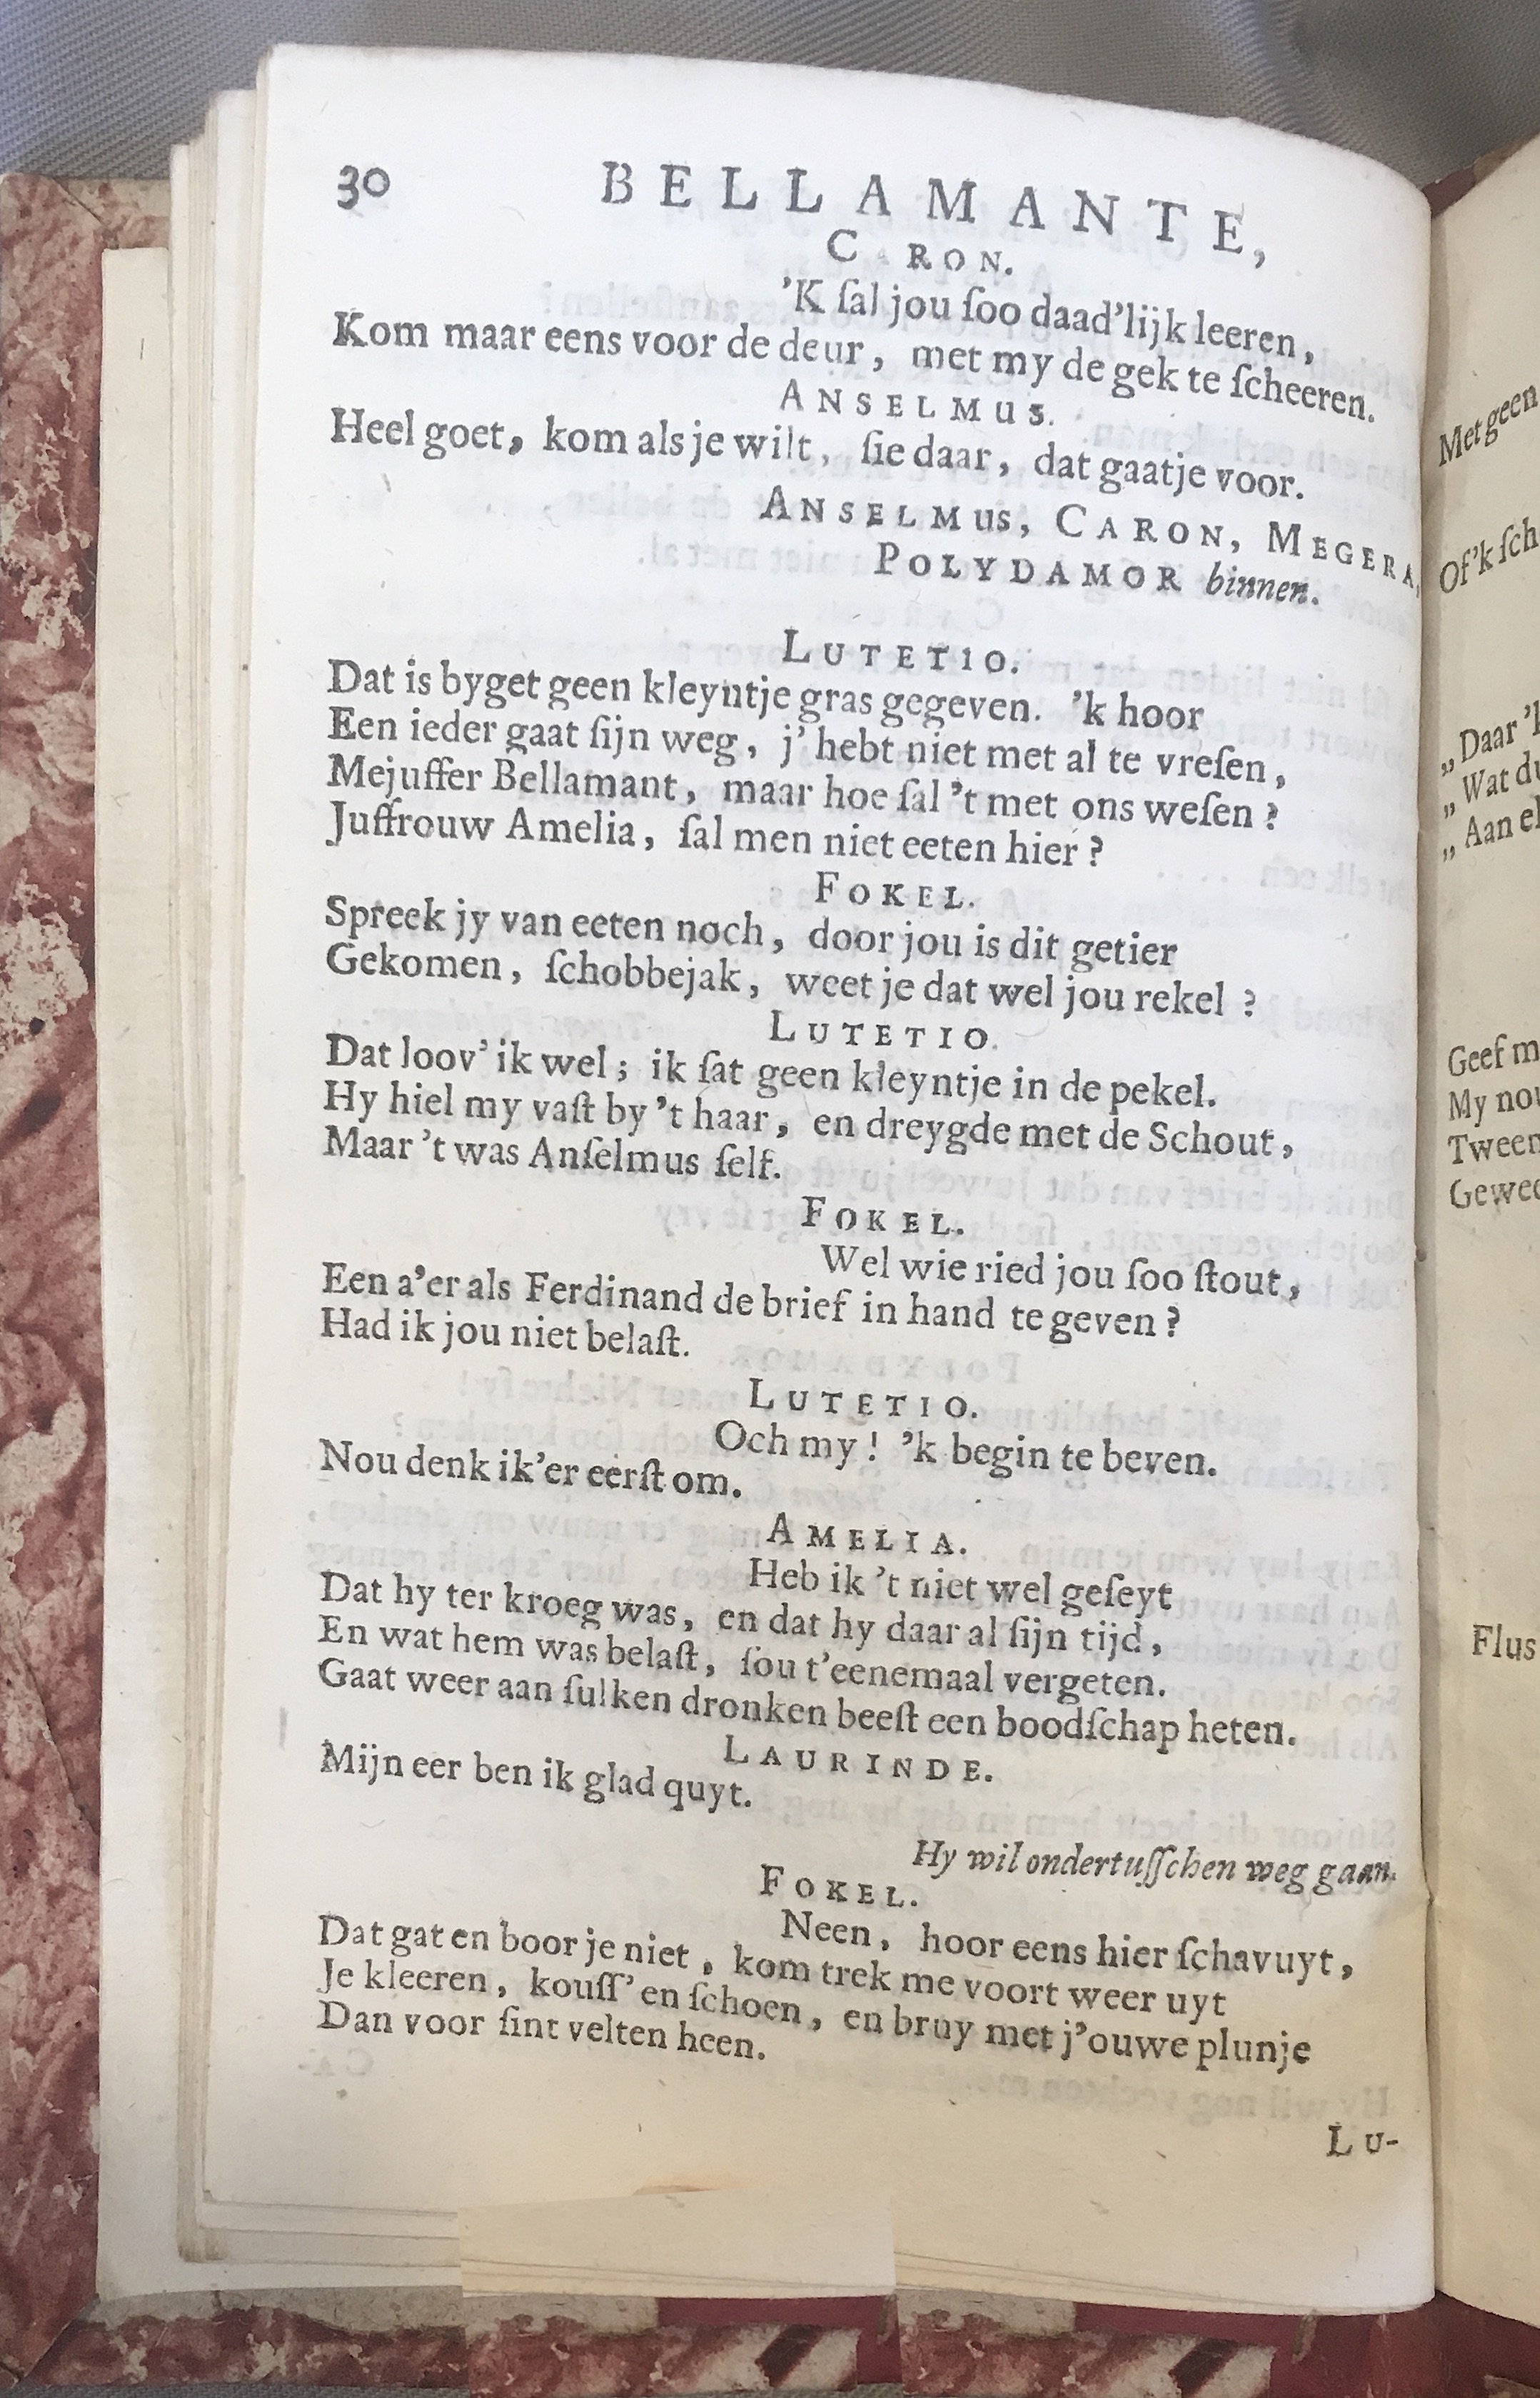 30 BELLAMANTE,
C RON.
'K ſal jou ſoo daad'lijk leeren,
Kom maar eens voor de deur, met my de gek te ſcheeren.
ANSELMUS.
Heel goet, kom als je wilt, ſie daar, dat gaatje voor.
ANSELMUS, CARON, MEGERA,
POLYDAMOR binnen.
LUTETIO.
Dat is byget geen kleyntje gras gegeven. 'k hoor
Een ieder gaat ſijn weg, j' hebt niet met al te vreſen,
Mejuffer Bellamant, maar hoe ſal 't met ons weſen?
Juffrouw Amelia, ſal men niet eeten hier?
FOKEL.
Spreek jy van eeten noch, door jou is dit getier
Gekomen, ſchobbejak, weet je dat wel jou rekel?
LUTETIO.
Dat loov' ik wel; ik ſat geen kleyntje in de pekel.
Hy hiel my vaſt by 't haar, en dreygde met de Schout,
Maar 't was Anſelmus ſelf.
FOKEL.
Wel wie ried jou ſoo ſtout,
Een a'er als Ferdinand de brief in hand te geven?
Had ik jou niet belaſt.
LUTETIO.
Och my! 'k begin te beven.
Nou denk ik'er eerſt om.
AMELIA.
Heb ik 't niet wel geſeyt
Dat hy ter kroeg was, en dat hy daar al ſijn tijd,
En wat hem was belaſt, ſou t'eenemaal vergeten.
Gaat weer aan ſulken dronken beeſt een boodſchap heten.
LAURINDE.
Mijn eer ben ik glad quyt.
Hy wil ondertuſſchen weg gaan.
FOKEL.
Neen, hoor eens hier ſchavuyt,
Dat gat en boor je niet, kom trek me voort weer uyt
Je kleeren, kouſſ' en ſchoen, en bruy met j'ouwe plunje
Dan voor ſint velten heen.
LU-
Met geen
Of 'k ſch
„Daar 'k
„Wat du
„Aan el
Geef m
My nou
Tween
Gewee
Flus